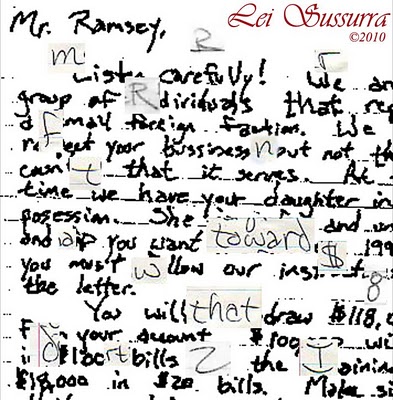 Lei Sussurra
©2010
Mr. Ramsey,
R
m r
Listen carefully! We are
group of R dividuals that rep
d F mall foreign faction. We
re pect your bussiness n but not the
coun t that it serves. At
time we have your daughter in
posession. She and un
and if you want toward 199
$
you must w llow our inst t
8
the letter.
You will that draw $118,0
F your account $100, wi
i $100 rt bills 2 the I aining
$18,000 in $20 bills. Make su